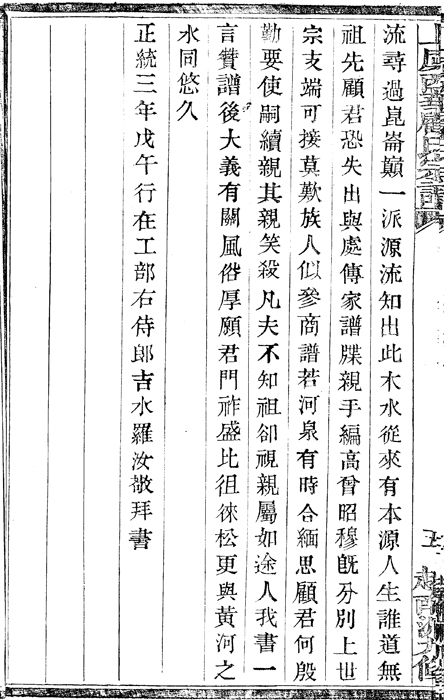 流尋過崑崙巔一派源流知出此木水從來有本源人生誰道無
祖先顧君恐失出與處傳家譜牒親手編高曾昭穆既分別上世
宗支端可接莫歎族人似參商譜若河泉有時合緬思顧君何殷
勤要使嗣續親其親笑殺凡夫不知祖卻視親屬如途人我書一
言贊譜後大義有關風俗厚願君門祚盛比徂徠松更與黃河之
水同悠久
正統三年戊午行在工部右侍郎吉水羅汝敬拜書